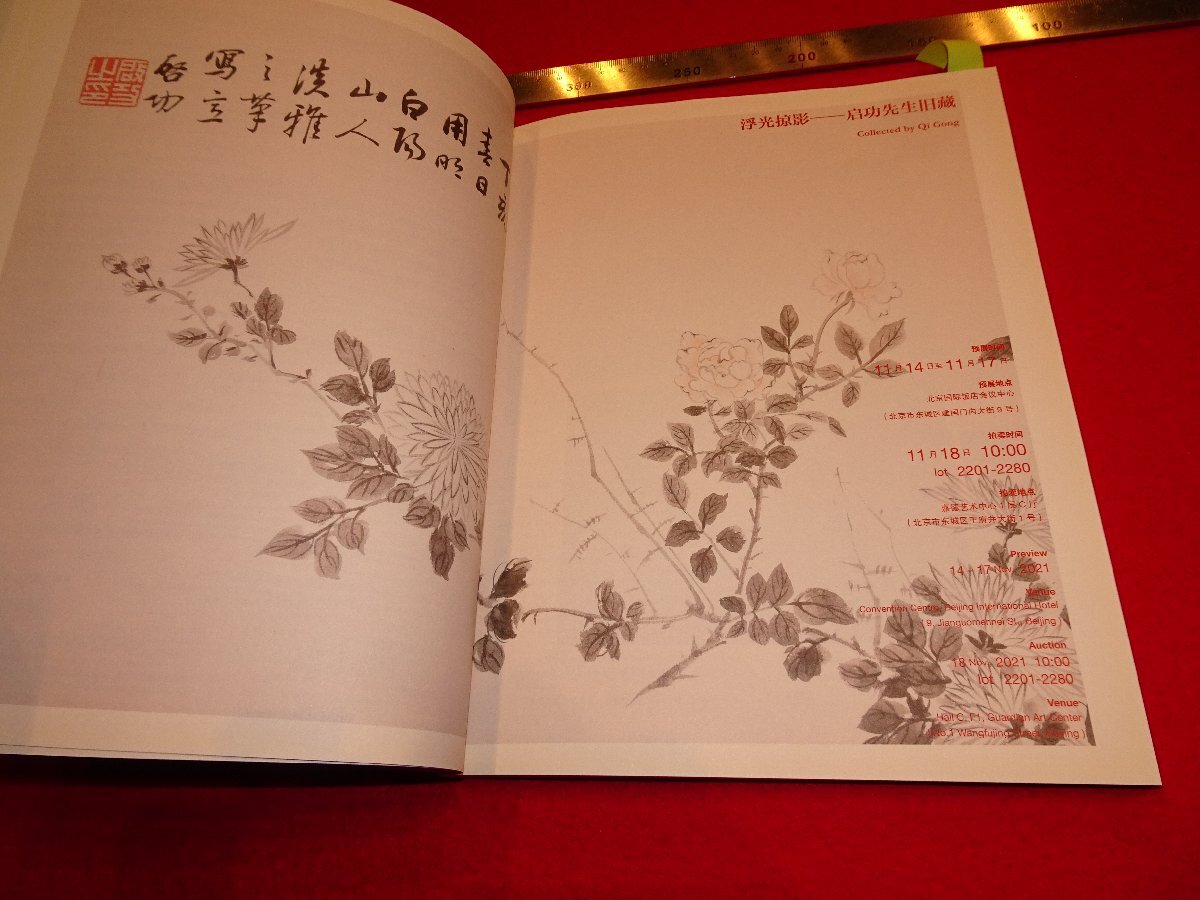 春日
用明
白陽
山人
淡雅
之筆
寫
啓功
300 250 200 150 100
浮光掠影——启功先生旧藏
Collected by Qi Gong
预展时间
11月14日至11月17日
预展地点
北京国际饭店会议中心
（北京市东城区建国门内大街9号）
拍卖时间
11月18日 10:00
lot 2201-2280
拍卖地点
嘉德艺术中心1层C厅
（北京市东城区王府井大街1号）
Preview
14 - 17 Nov, 2021
Venue
Convention Centre, Beijing International Hotel
( 9, Jianguomennei St., Beijing )
Auction
18 Nov, 2021 10:00
lot 2201-2280
Venue
Hall C, F1, Guardian Art Center
( No.1 Wangfujing Street, Beijing )